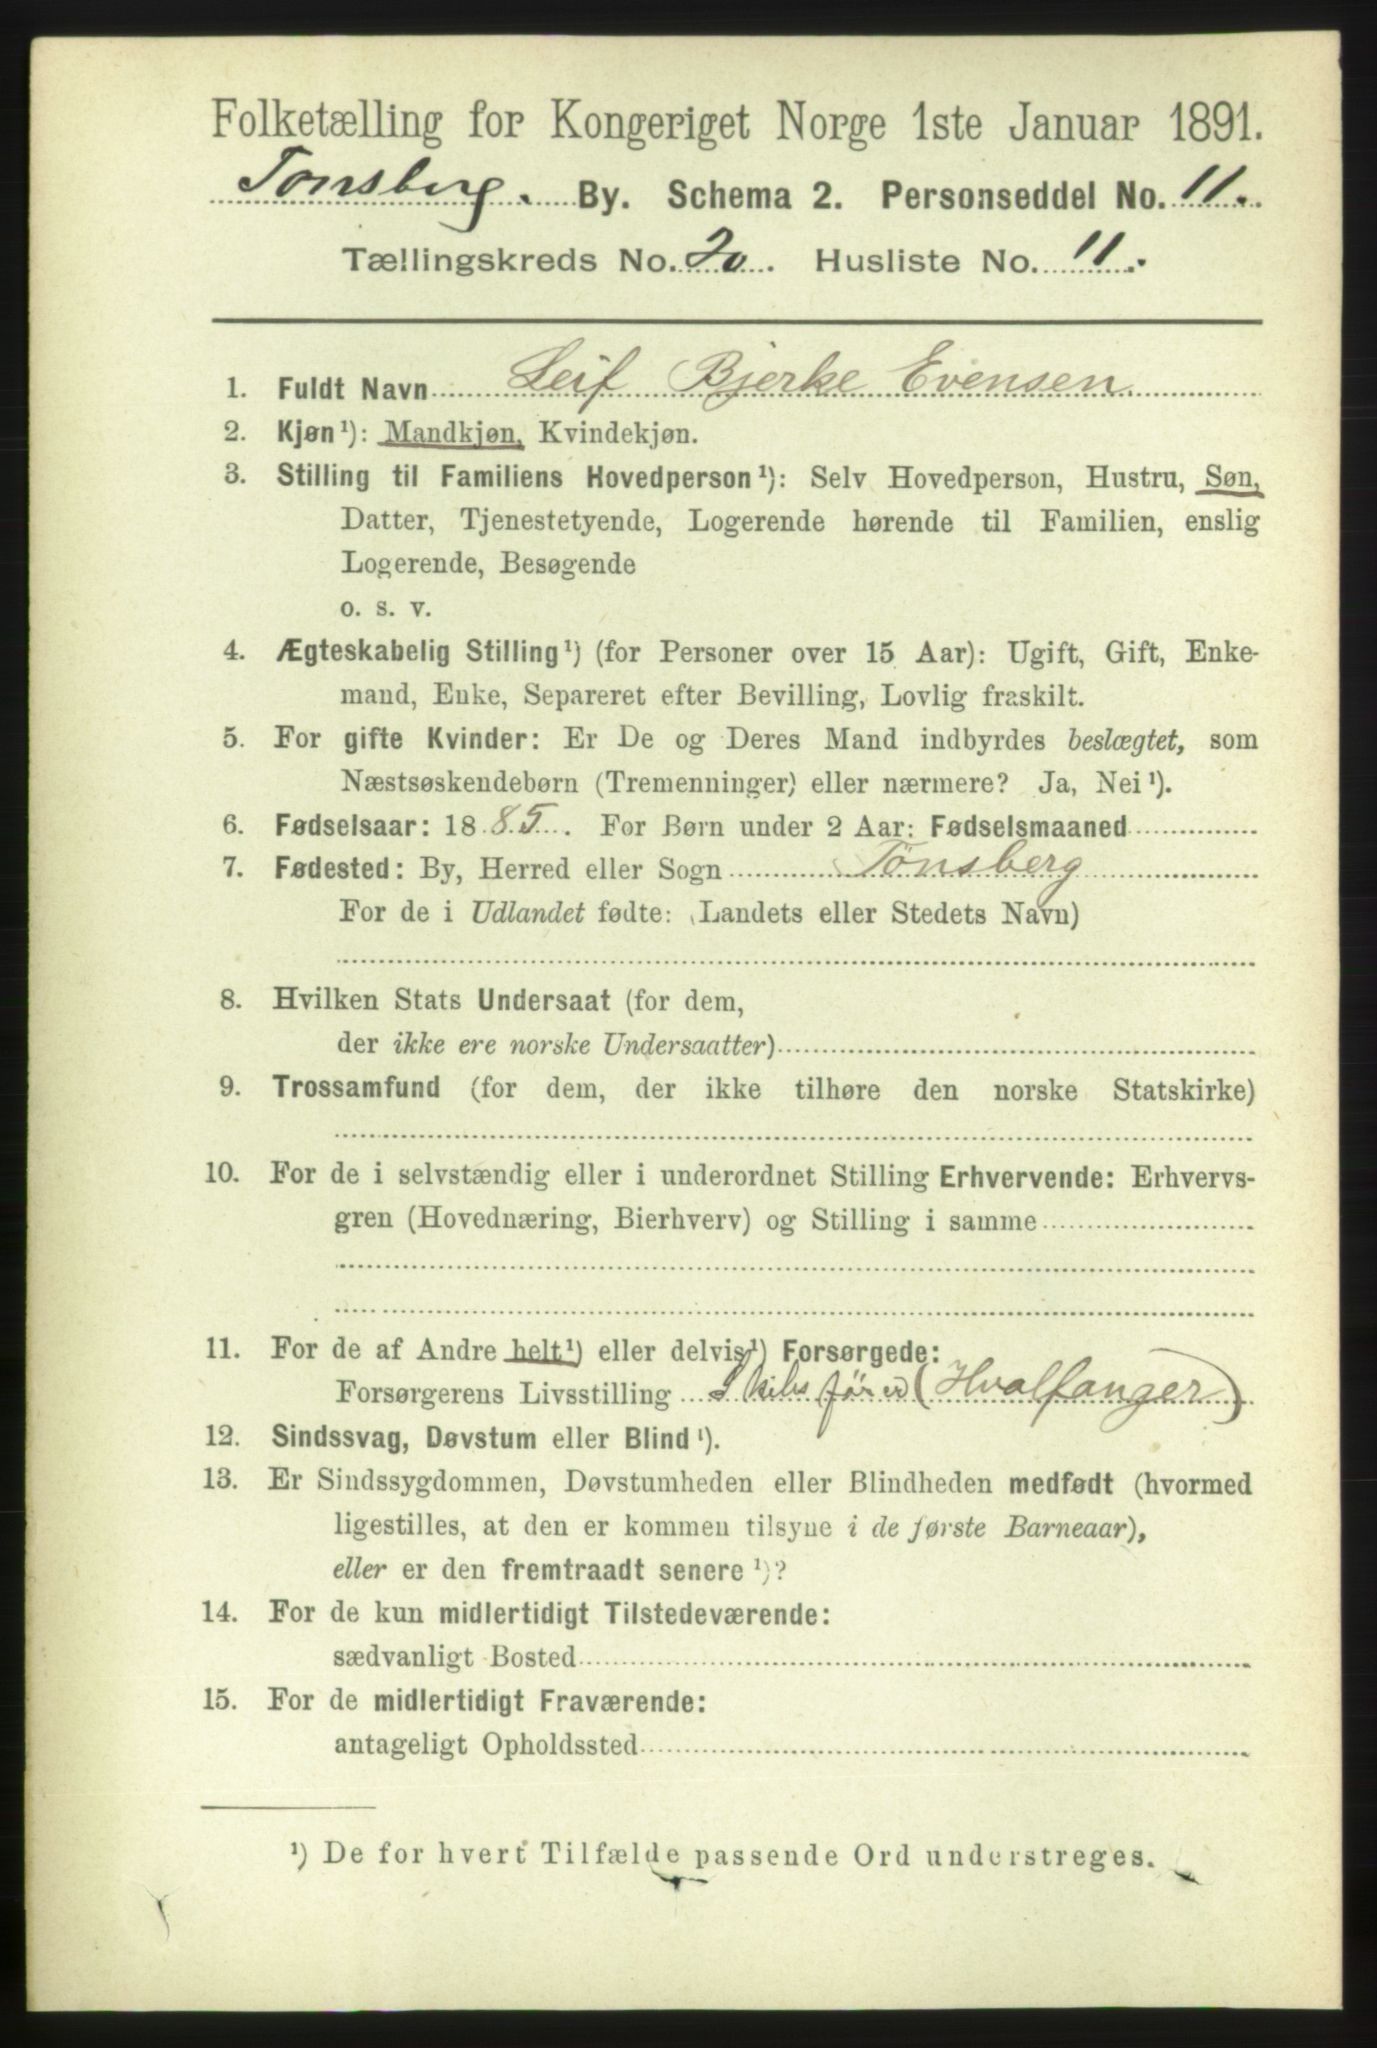 Folketælling for Kongeriget Norge 1ste Januar 1891.
Tønsberg. By. Schema 2. Personseddel No. 11.
Tællingskreds No. 20. Husliste No. 11.
1. Fuldt Navn Leif Bjerke Evensen.
2. Kjøn¹): Mandkjøn, Kvindekjøn.
3. Stilling til Familiens Hovedperson¹): Selv Hovedperson, Hustru, Søn,
Datter, Tjenestetyende, Logerende hørende til Familien, enslig
Logerende, Besøgende
o. s. v.
4. Ægteskabelig Stilling¹) (for Personer over 15 Aar): Ugift, Gift, Enke-
mand, Enke, Separeret efter Bevilling, Lovlig fraskilt.
5. For gifte Kvinder: Er De og Deres Mand indbyrdes beslægtet, som
Næstsøskendebørn (Tremenninger) eller nærmere? Ja, Nei¹).
6. Fødselsaar: 1885. For Børn under 2 Aar: Fødselsmaaned
7. Fødested: By, Herred eller Sogn Tønsberg
For de i Udlandet fødte: (Landets eller Stedets Navn)
8. Hvilken Stats Undersaat (for dem,
der ikke ere norske Undersaatter)
9. Trossamfund (for dem, der ikke tilhøre den norske Statskirke)
10. For de i selvstændig eller i underordnet Stilling Erhvervende: Erhvervs-
gren (Hovednæring, Bierhverv) og Stilling i samme
11. For de af Andre helt¹) eller delvis¹) Forsørgede:
Forsørgerens Livsstilling Skibsfører (Hvalfanger)
12. Sindssvag, Døvstum eller Blind¹).
13. Er Sindssygdommen, Døvstumheden eller Blindheden medfødt (hvormed
ligestilles, at den er kommen tilsyne i de første Barneaar),
eller er den fremtraadt senere¹)?
14. For de kun midlertidigt Tilstedeværende:
sædvanligt Bosted
15. For de midlertidigt Fraværende:
antageligt Opholdssted
¹) De for hvert Tilfælde passende Ord understreges.